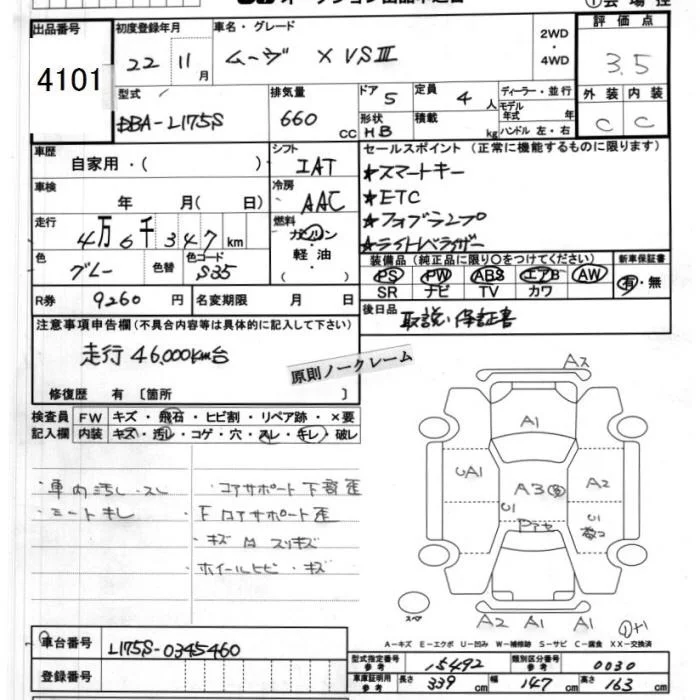 出品番号
4101
初度登録年月
22 11月
車名・グレード
ムーヴ X VSⅢ
2WD
・
4WD
評価点
3.5
外装 内装
C C
型式
DBA-L175S
排気量
660 CC
ドア 5
形状 HB
定員 4 人
積載 kg
ディーラー・並行
モデル年式 年
ハンドル 左・右
車歴
自家用・( )
シフト
IAT
冷房
AAC
車検
年 月( 日)
走行
4万6千347km
燃料
ガソリン・軽油・( )
色
グレー
色替
色コード
S35
R券 9260 円
名変期限 月 日
セールスポイント(正常に機能するものに限ります)
★スマートキー
★ETC
★フォグランプ
★ライトレベライザー
装備品(純正品に限り○をつけてください)
PS PW ABS エアB AW
SR ナビ TV カワ
新車保証書
有・無
後日品
取説、保証書
注意事項申告欄(不具合内容等は具体的に記入して下さい)
走行 46,000Km台
修復歴 有 〔箇所 〕
原則ノークレーム
検査員記入欄
FW キズ・飛石・ヒビ割・リペア跡・×要
内装 キズ・汚レ・コゲ・穴・スレ・キレ・破レ
・車内汚レ・スレ
・シートキレ
・コアサポート下部歪
・Fロアサポート歪
・キズ M スリキズ
・ホイールヒビ・キズ
Aス
A1
UA1
A3
A2
U1
U1
A2 A1 A1
スペア
A-キズ E-エクボ U-凹み W-補修跡 S-サビ C-腐食 XX-交換済
車台番号 L175S-0345460
登録番号
型式指定番号 参考 15492
類別区分番号 参考 0030
車庫証明用 参考 長さ 339 cm 幅 147 cm 高さ 163 cm